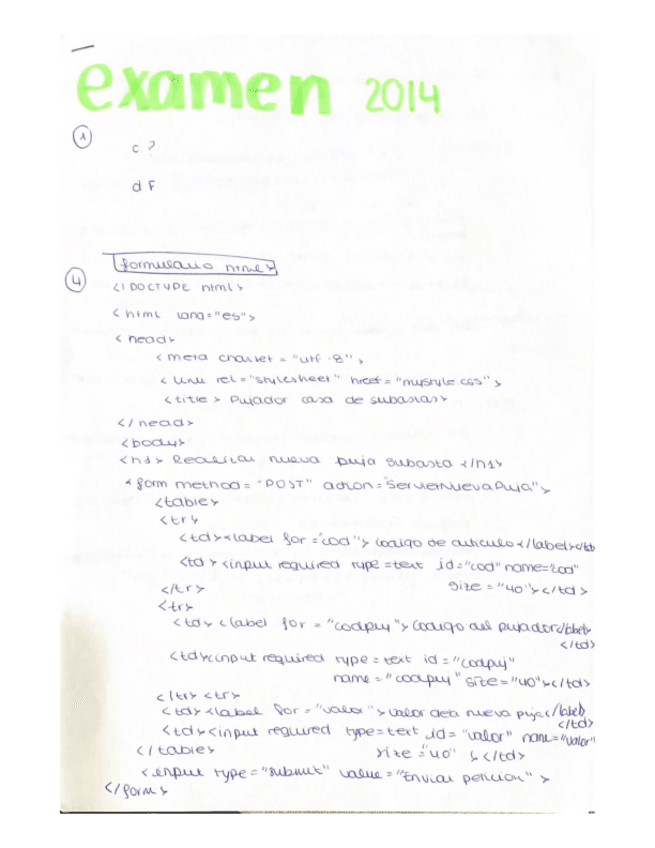 examen 2014
1
c ?
d F
formulario html
4
<! DOCTYPE html>
<html lang="es">
<head>
<meta charset = "utf-8">
<link rel="stylesheet" href="mystyle.css">
<title> Pujador casa de subastas>
</head>
<body>
<h1> Realizar nueva puja subasta </h1>
<form method= "POST" action="ServletNuevaPuja">
<table>
<tr>
<td><label for="cod"> codigo de articulo </label></td>
<td><input required type=text id="cod" name=cod"
size = "40"></td>
</tr>
<tr>
<td> <label for = "codpuj"> Codigo del pujador</label>
</td>
<td><input required type = text id = "codpuj"
name = "codpuj" size="40"></td>
</tr> <tr>
<td><label for="valor"> valor de la nueva puja </label>
</td>
<td><input required type=text id= "valor" name="valor"
size ="40" ></td>
</table>
<input type="submit" value="Enviar peticion" >
</form>